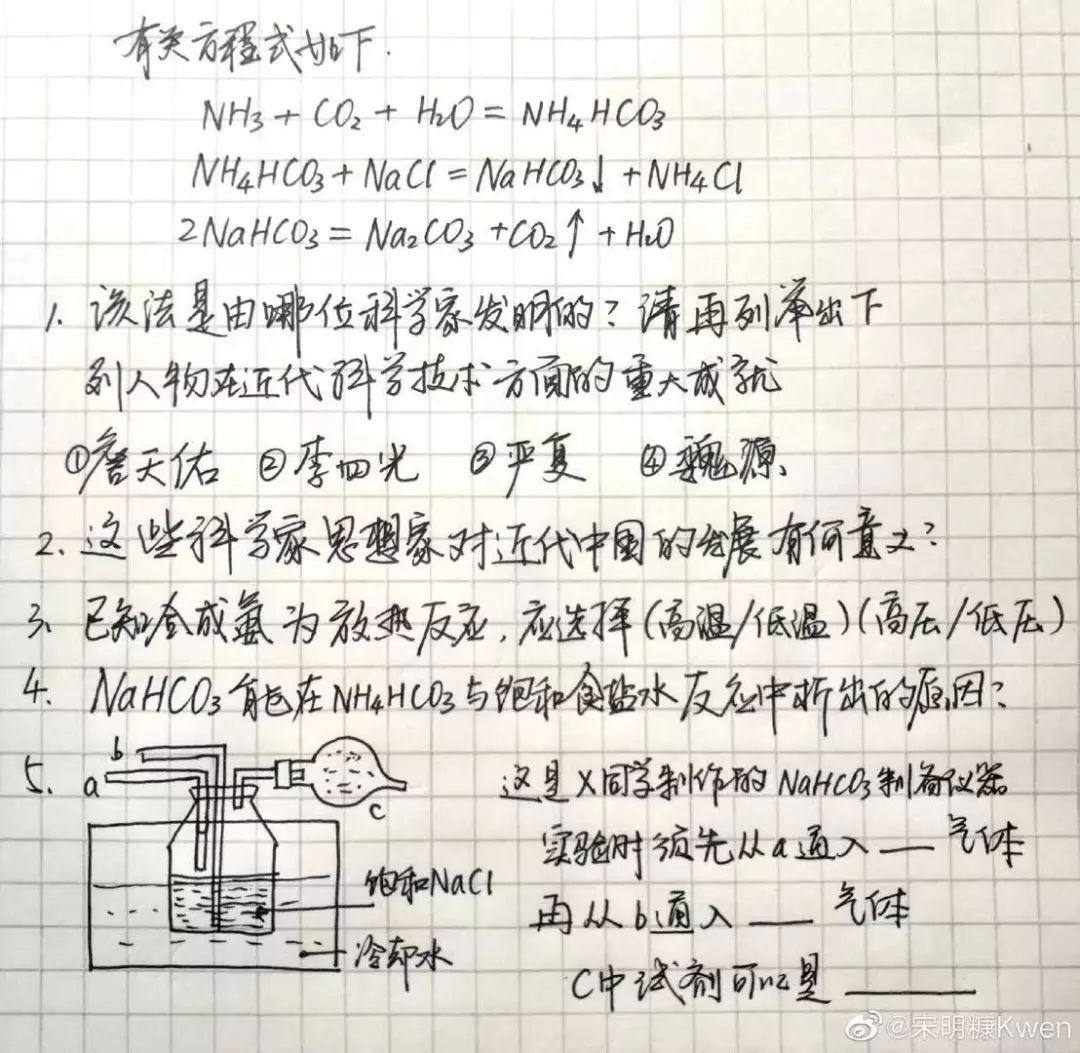 有关方程式如下.
NH₃ + CO₂ + H₂O = NH₄HCO₃
NH₄HCO₃ + NaCl = NaHCO₃↓ + NH₄Cl
2NaHCO₃ = Na₂CO₃ + CO₂↑ + H₂O
1. 该法是由哪位科学家发明的？请再列举出下
列人物在近代科学技术方面的重大成就
①詹天佑 ②李四光 ③严复 ④魏源.
2. 这些科学家思想家对近代中国的发展有何意义？
3. 已知合成氨为放热反应，应选择(高温/低温)(高压/低压)
4. NaHCO₃能在NH₄HCO₃与饱和食盐水反应中析出的原因？
5. 这是X同学制作的NaHCO₃制备仪器
实验时须先从a通入 __ 气体
再从b通入 __ 气体
C中试剂可以是 ____
b
a
c
饱和NaCl
冷却水
@宋明糠Kwen